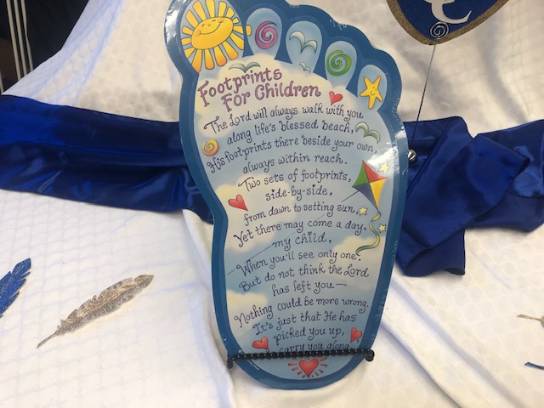 Footprints
For Children
The Lord will always walk with you
along life's blessed beach,
His footprints there beside your own,
always within reach.
Two sets of footprints,
side-by-side,
from dawn to setting sun,
Yet there may come a day,
my child,
—When you'll see only one.
But do not think the Lord
has left you—
Nothing could be more wrong.
It's just that He has
picked you up,
carry you along